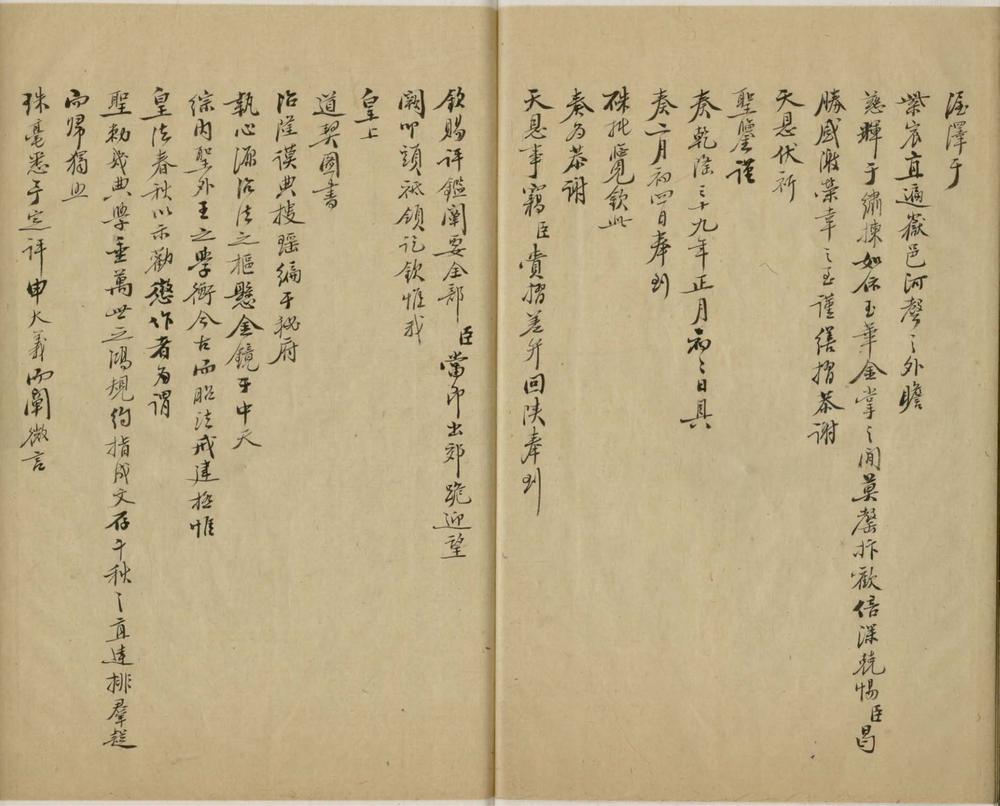 渥澤于
紫宸直遍嶽邑河聲之外瞻
慈輝于繡揀如依玉華金掌之間莫罄抃歡倍深兢惕臣曷
勝感激榮幸之至謹繕摺恭謝
天恩伏祈
聖鑒謹
奏乾隆三十九年正月初三日具
奏二月初四日奉到
硃批覽欽此
奏為恭謝
天恩事竊臣賫摺差弁回陝奉到
欽賜評鑑闡要全部臣當即出郊跪迎望
闕叩頭祗領訖欽惟我
皇上
道契圖書
治隆謨典搜瑶編于秘府
執心源治法之樞懸金鏡于中天
綜內聖外王之學衡今古而昭法戒建極惟
皇法春秋以示勸懲作者為謂
聖勅幾典學垂萬世之鴻規約指成文存千秋之直達排羣超
而歸獨出
珠毫悉于定評申大義而闡微言